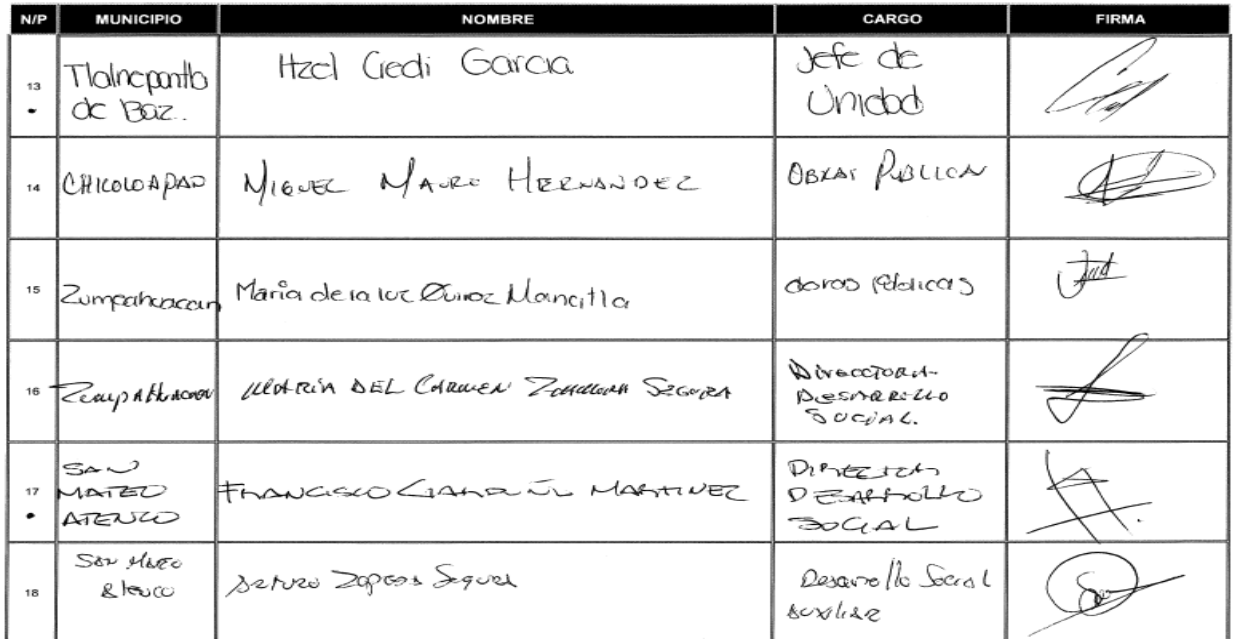 N/P MUNICIPIO NOMBRE CARGO FIRMA
13 Tlalnepantla de Baz. Itzel Giedi Garcia Jefe de Unidad
14 CHICOLOAPAN MIGUEL MAURO HERNANDEZ OBRAS PUBLICAS
15 Zumpahuacan Maria de la luz Quiroz Mancilla obras públicas
16 Zumpahuacan MARIA DEL CARMEN SEGURA DIRECTORA DESARROLLO SOCIAL.
17 SAN MATEO ATENCO FRANCISCO MARTINEZ DIRECTOR DESARROLLO SOCIAL
18 San Mateo Atenco Arturo Segura Desarrollo Social Auxiliar